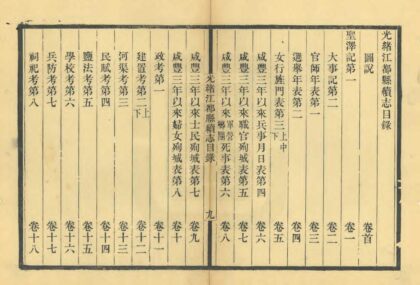 光緒江都縣續志目錄
圖說 卷首
聖澤記第一 卷一
大事記第二 卷二
官師年表第一 卷三
選舉年表第二 卷四
女行旌門表第三上中下 卷五
咸豐三年以來兵事月日表第四 卷六
咸豐三年以來職官殉城表第五 卷七
咸豐三年以來軍營鄉團死事表第六 卷八
光緒江都縣續志目錄 九
咸豐三年以來士民殉城表第七 卷九
咸豐三年以來婦女殉城表第八 卷十
政考第一 卷十一
建置考第二上下 卷十二
河渠考第三 卷十三
民賦考第四 卷十四
鹽法考第五 卷十五
學校考第六 卷十六
兵防考第七 卷十七
祠祀考第八 卷十八